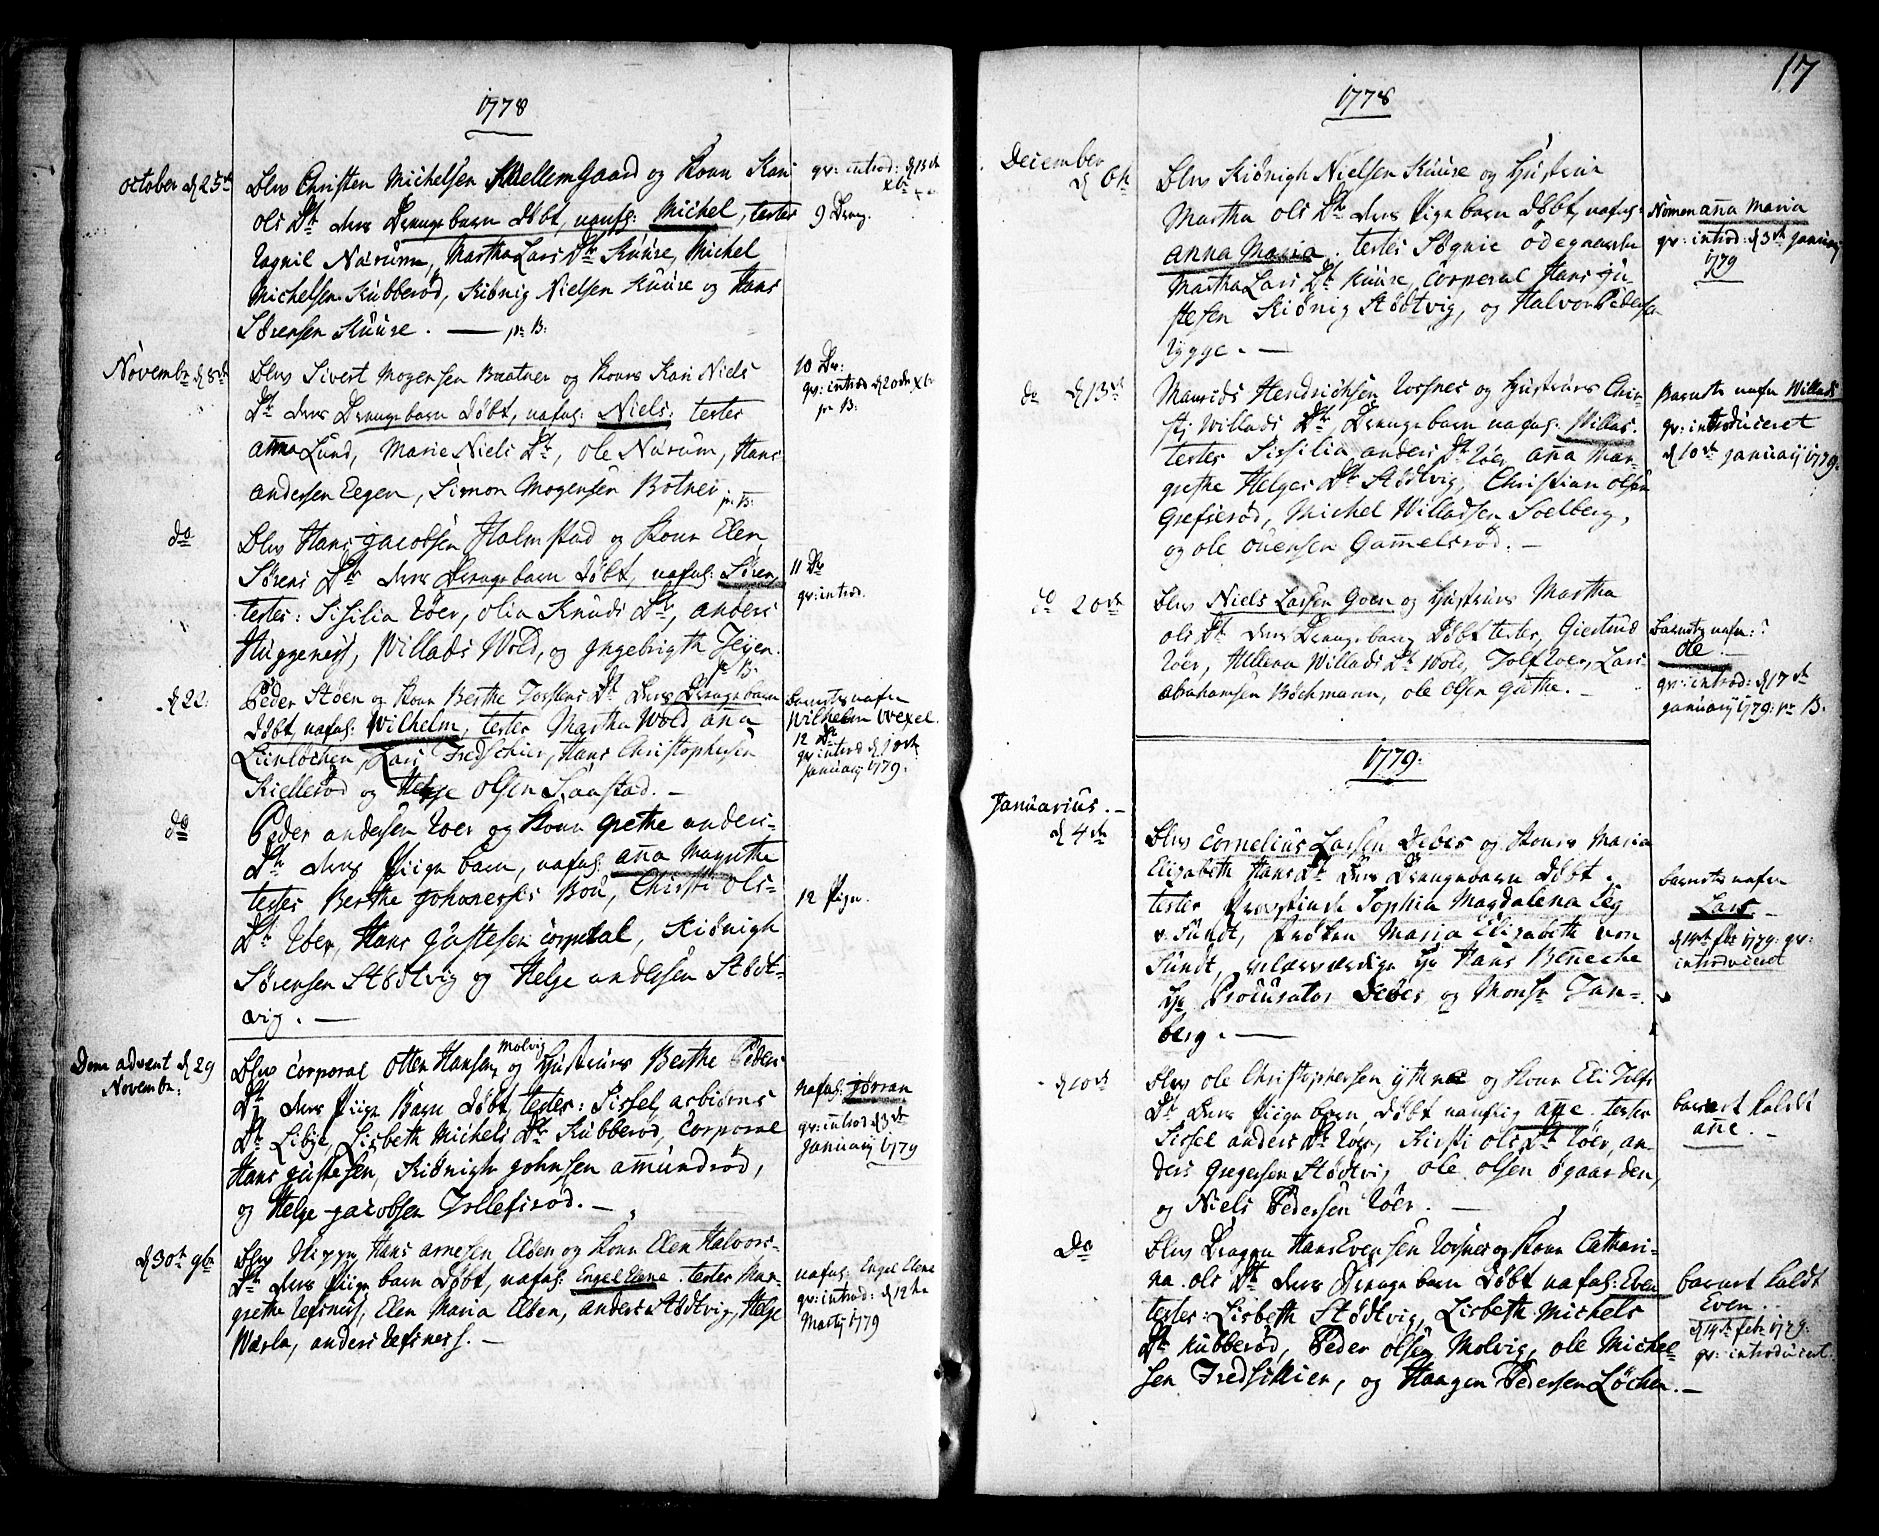 1778
october d 25de
Blev Christen Michelsen Mellemgaard og Kone Kari
ols Dr. deres Drenge barn døbt, nafnl: Michel, testes
Narum, Martha Lars Dr. Kuure, Michel
Michelsen Kubberød, Kiønig Nielsen Kuure og Hans
Sørensen Kuure. — pr B:
qv: introd: d 13de
xbr
9 Dreng.
Novembr d 8de
Blev Sivert Mogensen Baatner og Kones Kari Niels
Dr. deres Drenge barn døbt, nafnl: Niels: testes
anna Lund, Marie Niels Dr, ole Narum, Hans
andersen Eegen, Simon Mogensen Botner pr B:
10 Dr:
qv: introd d 20de xbr
pr B:
do
Blev Hans Jacobsen Halmstad og Kone Elen
Sørens Dr. deres Drenge barn døbt, nafnl: Søren,
testes: Sisilia Røer, olia Knuds Dr, anders
Huggenest, Willads Wold, og Ingebrigth Jeÿen.
pr B:
11 Dr
qv: introd.
d 22:
Peder Støen og Kone Berthe Torstens Dr. deres Drenge barn
døbt, nafnl: Wilhelm, testes Martha Wold aña
Liinløchen, Lars Fredschier, Hans Christophersen
Kiellerød og Helge olsen Kaastad. —
barnets nafn
Wilhelm Wexel.
12 Dr
qv: introd d 10de
January 1779.
do
Peder andersen Røer og Kone grethe anders-
Dr. deres Piige barn, nafnl: aña Magrethe
testes Berthe Johanesses Bou, Christi ols-
Dr. Røer, Hans Justesen corporal, Kiønigh
Sørensen Stødtvig og Helge andersen Stødt-
vig. —
12 Pige.
Dom advent d 29
Novembr:
Blev Corporal Otter Hansen Molvig og Hustrues Berthe Peders
Dr. deres Piige Barn døbt, testes: Sissel asbiørns
Dr. Libje, Lisbeth Michels Dr. Kubberød, Corporal
Hans Justesen, Kiønigh Johnsen amundrød,
og Helge Jacobsen Tollefsrød. —
nafnl: Jørran
qv: introd d 3de
January 1779
d 30te 9br
Blev Hans arnesen Eløen og Kone Elen Halvors-
Dr. deres Piige barn døbt, nafnl: Engel Elene. testes Mar-
grethe Refsnes, Elen Maria Eløen, anders Stødtvig, Helge
Wærla, anders Refsness. —
nafnl: Engel Elene
qv: introd: d 12te
Marty 1779
17
1778
December
d 6te
Blev Kiønigh Nielsen Kuure og Hustrue
Martha ols Dr. deres Piige barn døbt, nafnl:
anna Maria. testes Signie odegaarden
Martha Lars Dr. Kuure, Corporal Hans Ju-
stesen Kiønig Stødtvig, og Halvor Pedersen
Rygge. —
Nomen aña Maria
qv: introd: d 3de January
1779
do d 13de
Maurids Hendrichsen Rosnes og Hustrues Chir-
sti Willads Dr. Drenge barn nafnl: Willas.
testes Sissilia anders Dr. Røer, aña Mar-
grethe Helges Dr. Stødtvig, Christian olsen
Grefserød, Michel Willadsen Soelberg,
og ole ouensen Gamelsrød. —
Barnets nafn Willads
qv: introduceret
d 10de January 1779.
do 20de
Blev Niels Larsen Goen og Hustrues Martha
ols Dr. deres Drenge barn døbt testes, Giertrud
Røer, Hellena Willads Dr. Wold, Tolf Røer, Lars
abrahamsen Bøchmann, ole olsen Guthe. —
barnets nafn:
ole. —
qv: introd: d 17de
January 1779: pr B:
1779.
Januarius. —
d 4de
Blev Cornelius Larsen Debes og Kones Maria
Elizabeth Hans Dr. deres Drenge barn døbt.
testes Provstinde Sophia Magdalena Leg
v. Sundt, Frøken Maria Elizabeth von
Sundt, velærværdige Hr Hans Beneche
Hr Procurator Debes og Monsr Tan-
berg. —
barnets nafn
Lars. —
d 14de febr 1779: qv:
introduceret
d 10de
Blev ole Christophersen og Kone Eli Tolfs
Dr. deres Piige barn, døbt nafnlig añe. testes
Sissel anders Dr. Røer, Kirsti ols Dr. Røer, an-
ders Gregersen Stødtvig ole olsen øgaarden,
og Niels Pedersen Røer. —
barnet kaldt
añe. —
Do
Blev Dragon Hans Evensen Rosnes og Kone Cathari-
na ols Dr. deres Drenge barn døbt nafnl: Even
testes Lisbeth Stødtvig, Lisbeth Michels
Dr. Kubberød, Peder olsen Molvig, ole Michel-
sen Fredskier, og Haagen Pedersen Løchen. —
barnet kaldt
Even. —
d 14de febr 1779:
qv: introduceret: